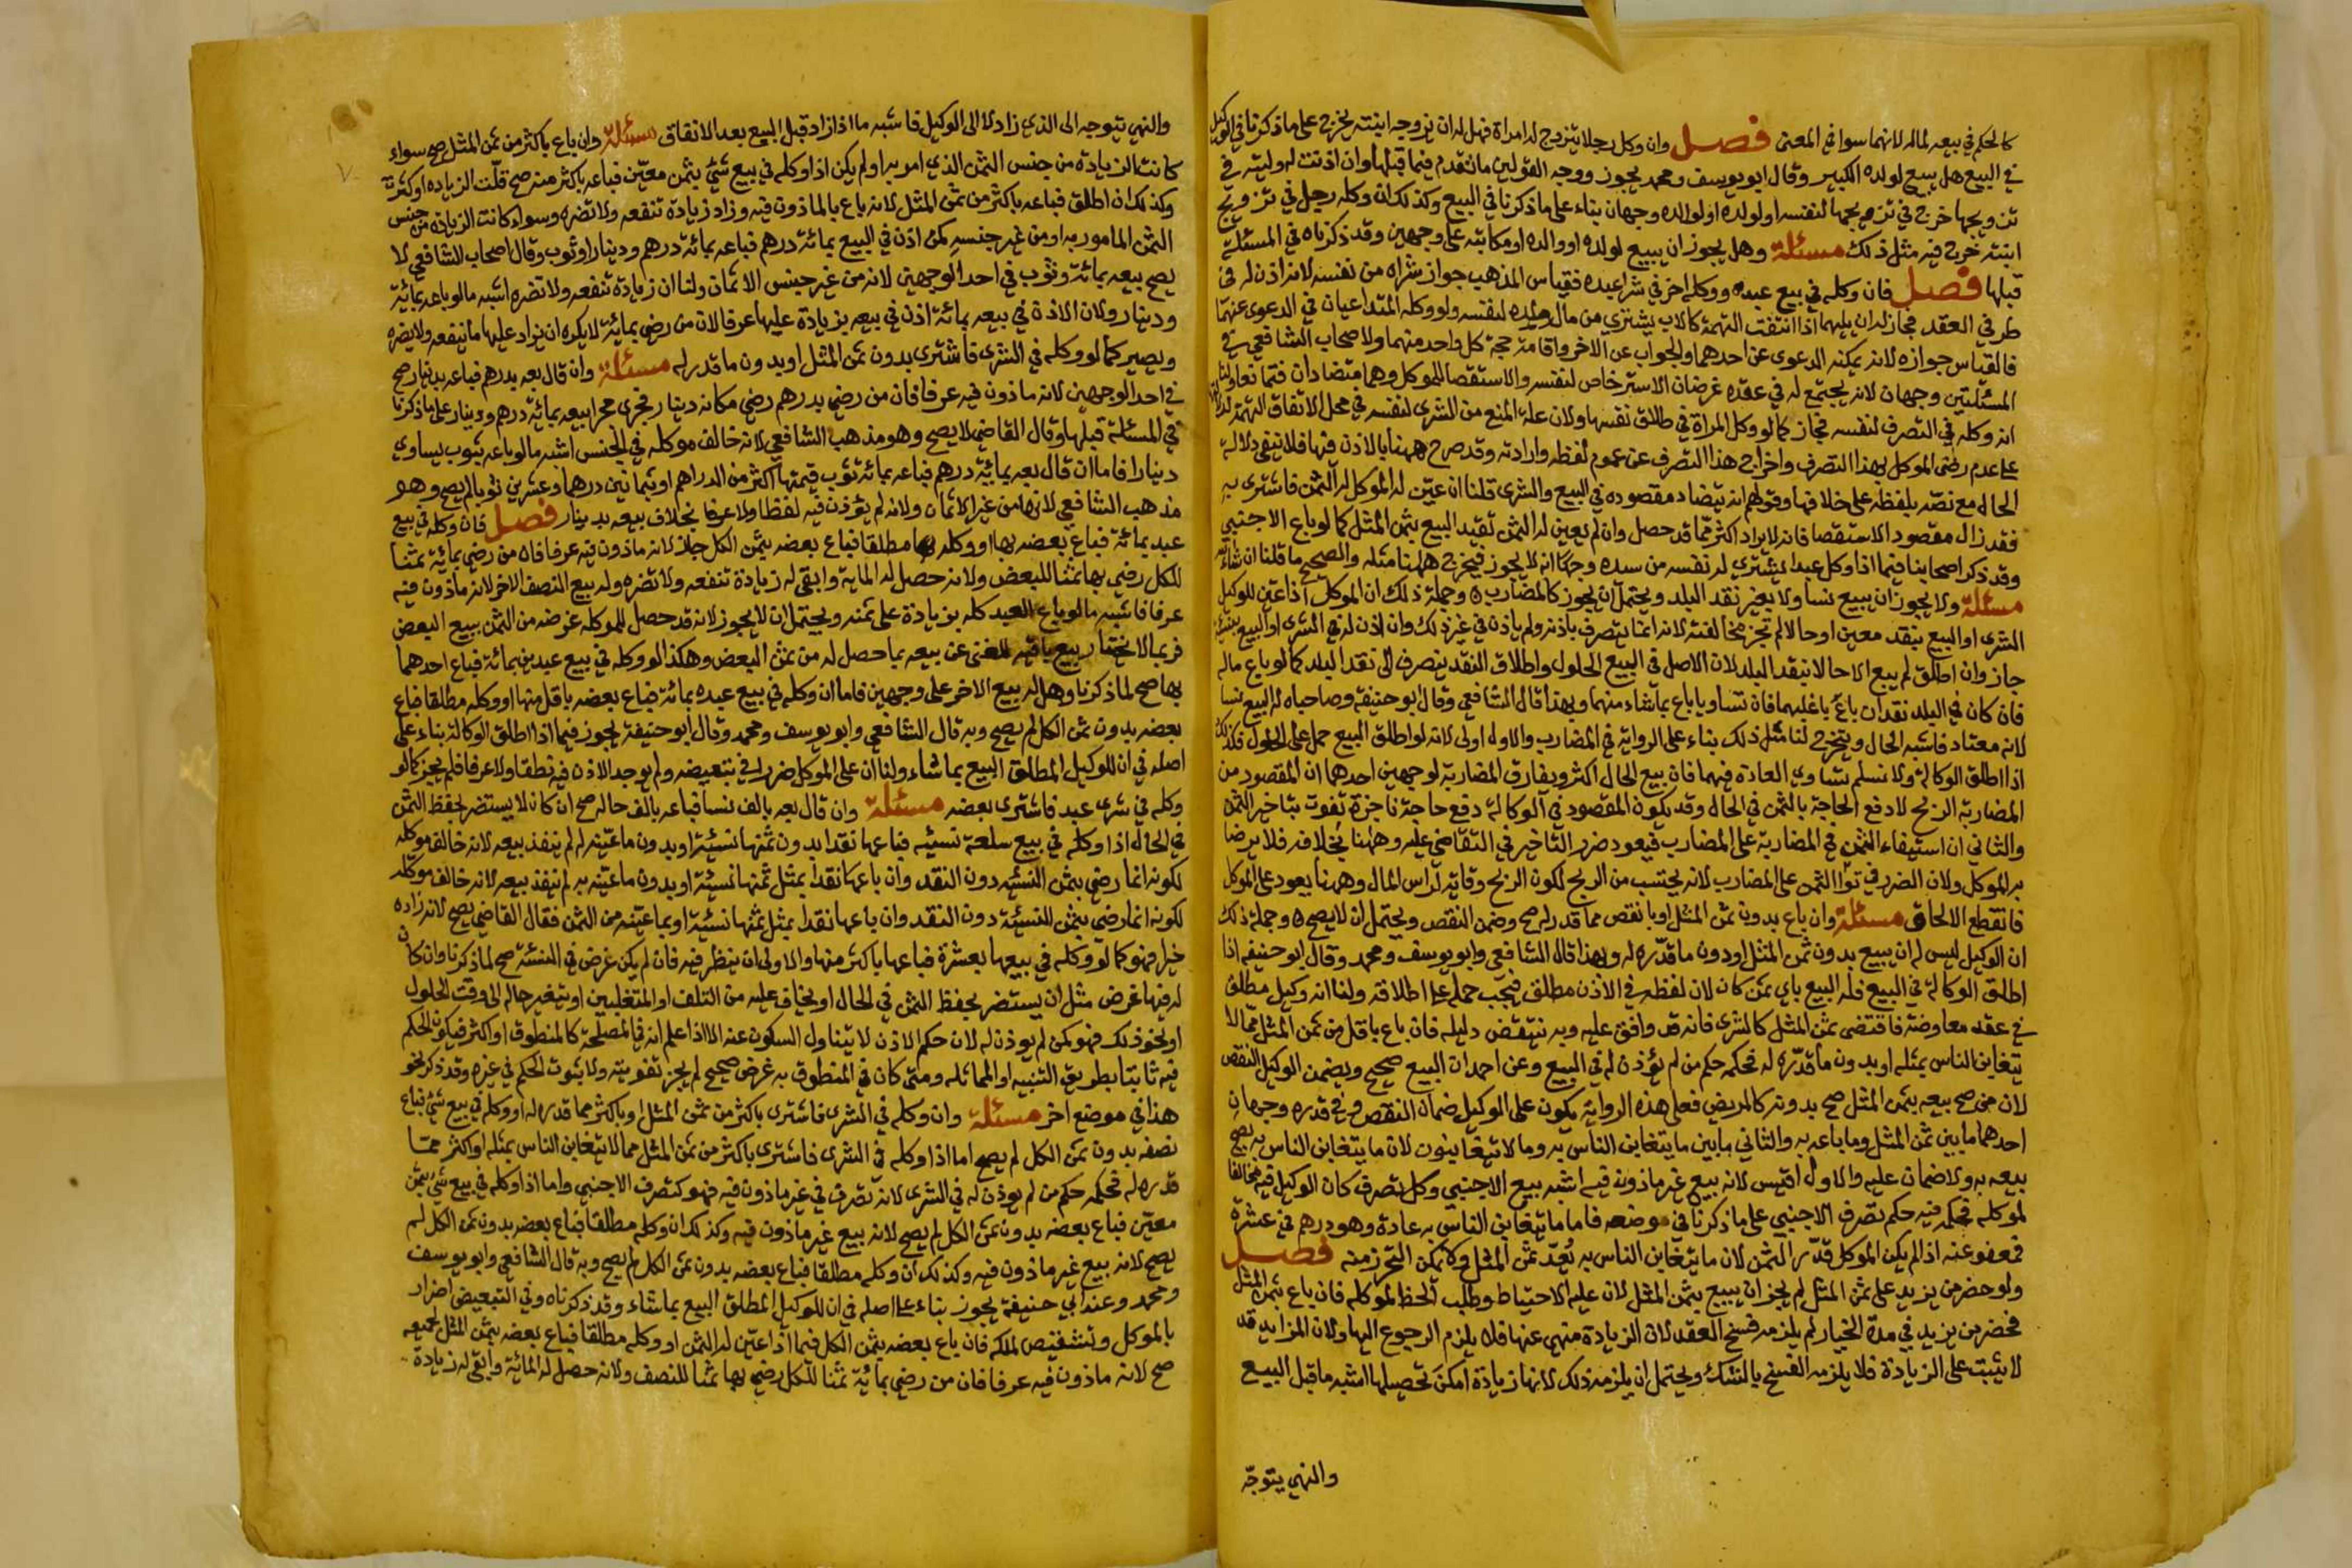 كالحكم في بيعه لماله لانهما سوا في المعنى فصل وان وكل رجلا يتزوج له امراة فهل له ان يزوجه ابنته يخرج على ما ذكرنا في الوكيل
في البيع هل يبيع لولده الكبير وقال ابو يوسف ومحمد يجوز ووجه القولين ما تقدم فيما قبلها وان اذنت له وليته في
تزويجها خرج في تزويجها لنفسه او لولده او لوالده وجهان بناء على ما ذكرنا في البيع وكذلك ان وكله رجل في تزويج
ابنته خرج فيه مثل ذلك مسئلة وهل يجوز ان يبيع لولده او والده او مكاتبه على وجهين وقد ذكرناه في المسئلة
قبلها فصل فان وكله في بيع عبده ووكله اخر في شرا عبده فقياس المذهب جواز شراه من نفسه لانه اذن له في
طرفي العقد فجاز له ان يليهما اذا انتفت التهمة كالاب يشتري من مال ولده لنفسه ولو وكله المتداعيان في الدعوى عنهما
فالقياس جوازه لانه يمكنه الدعوى عن احدهما والجواب عن الاخر واقامة حجة كل واحد منهما ولاصحاب الشافعي في
المسئلتين وجهان لانه يجتمع له في عقده غرضان الاسترخاص لنفسه والاستقصا للموكل وهما متضادان فتمانعا ولنا
انه وكله في التصرف لنفسه فجاز كما لو وكل المراة في طلاق نفسها ولان علة المنع من الشرى لنفسه في محل الاتفاق التهمة لدلالتها
على عدم رضى الموكل بهذا التصرف واخراج هذا التصرف عن عموم لفظه وارادته وقد صرح ههنا بالاذن فيها فلا تبقى دلالة
الحال مع نصه بلفظه على خلافها وقولهم انه يتضاد مقصوده في البيع والشرى قلنا ان عين له الموكل له الثمن فاشترى به
فقد زال مقصود الاستقصا فانه لا يراد اكثر مما قد حصل وان لم يعين له الثمن تقيد البيع بثمن المثل كما لو باع الاجنبي
وقد ذكر اصحابنا فيما اذا وكل عبدا يشتري له نفسه من سيده وجها انه لا يجوز فيخرج ههنا مثله والصحيح ما قلنا ان شاء الله
مسئلة ولا يجوز ان يبيع نسا ولا بغير نقد البلد ويحتمل ان يجوز كالمضارب وجملة ذلك ان الموكل اذا عين للوكيل
الشرى او البيع بنقد معين او حالا لم تجز مخالفته لانه انما يتصرف باذنه ولم ياذن في غير ذلك وان اذن له في الشرى او البيع بنسيئة
جاز وان اطلق لم يبع الا حالا بنقد البلد لان الاصل في البيع الحلول واطلاق النقد ينصرف الى نقد البلد كما لو باع ماله
فان كان في البلد نقدان باع باغلبهما فان تساويا باع بما شاء منهما وبهذا قال الشافعي وقال ابو حنيفة وصاحباه له البيع نسا
لانه معتاد فاشبه الحال ويتخرج لنا مثل ذلك بناء على الرواية في المضارب والاول اولى لانه لو اطلق البيع حمل على الحلول فكذلك
اذا اطلق الوكالة ولا نسلم تساوي العادة فيهما فان بيع الحال اكثر ويفارق المضاربة لوجهين احدهما ان المقصود من
المضاربة الربح لا دفع الحاجة بالثمن في الحال وقد يكون المقصود في الوكالة دفع حاجة ناجزة تفوت بتاخير الثمن
والثاني ان استيفاء الثمن في المضاربة على المضارب فيعود ضرر التاخير في التقاضي عليه وههنا بخلافه فلا يرضا
به الموكل ولان الضرر في توا الثمن على المضارب لانه يحتسب من الربح لكون الربح وقاية لراس المال وههنا يعود على الموكل
فانقطع الالحاق مسئلة وان باع بدون ثمن المثل او بانقص مما قدر له صح وضمن النقص ويحتمل ان لا يصح وجملة ذلك
ان الوكيل ليس له ان يبيع بدون ثمن المثل او دون ما قدره له وبهذا قال الشافعي وابو يوسف ومحمد وقال ابو حنيفه اذا
اطلق الوكالة في البيع فله البيع باي ثمن كان لان لفظه في الاذن مطلق فيجب حمله على اطلاقه ولنا انه وكيل مطلق
في عقد معاوضة فاقتضى ثمن المثل كالشرى فانه قد وافق عليه وبه ينتقض دليله فان باع باقل من ثمن المثل مما لا
يتغابن الناس بمثله او بدون ما قدره له فحكمه حكم من لم يؤذن له في البيع وعن احمد ان البيع صحيح ويضمن الوكيل النقص
لان من صح بيعه بثمن المثل صح بدونه كالمريض فعلى هذه الرواية يكون على الوكيل ضمان النقص وفي قدره وجهان
احدهما ما بين ثمن المثل وما باعه به والثاني ما بين ما يتغابن الناس به وما لا يتغابنون لان ما يتغابن الناس به يصح
بيعه به ولا ضمان عليه والاول اقيس لانه بيع غير ماذون فيه اشبه بيع الاجنبي وكل تصرف كان الوكيل فيه مخالفا
لموكله فحكمه فيه حكم تصرف الاجنبي على ما ذكرنا في موضعه فاما ما يتغابن الناس به عادة وهو درهم في عشرة
فمعفو عنه اذا لم يكن الموكل قدر الثمن لان ما يتغابن الناس به يعد ثمن المثل ولا يمكن التحرز منه فصل
ولو حضر من يزيد على ثمن المثل لم يجز ان يبيع بثمن المثل لان عليه الاحتياط وطلب الحظ لموكله فان باع بثمن المثل
فحضر من يزيد في مدة الخيار لم يلزمه فسخ العقد لان الزيادة منهي عنها فلا يلزم الرجوع اليها ولان المزايد قد
لا يثبت على الزيادة فلا يلزمه الفسخ بالشك ويحتمل ان يلزمه ذلك لانها زيادة امكن تحصيلها اشبه ما قبل البيع
والنهي يتوجه
والنهي يتوجه الى الذي زاد لا الى الوكيل فاشبه ما اذا زاد قبل البيع بعد الاتفاق مسئلة وان باع باكثر من ثمن المثل صح سواء
كانت الزيادة من جنس الثمن الذي امر به او لم يكن اذا وكله في بيع شئ بثمن معين فباعه باكثر منه صح قلت الزياده او كثرت
وكذلك ان اطلق فباعه باكثر من ثمن المثل لانه باع بالماذون فيه وزاد زيادة تنفعه ولا تضره وسواء كانت الزيادة من جنس
الثمن المامور به او من غير جنسه كمن اذن في البيع بمائة درهم فباعه بمائة درهم ودينار او ثوب وقال اصحاب الشافعي لا
يصح بيعه بمائة وثوب في احد الوجهين لانه من غير جنس الاثمان ولنا ان زيادة تنفعه ولا تضره اشبه ما لو باعه بمائة
ودينار ولان الاذن في بيعه بمائة اذن في بيعه بزيادة عليها عرفا لان من رضي بمائة لا يكره ان يزاد عليها ما ينفعه ولا يضره
ويصير كما لو وكله في الشرى فاشترى بدون ثمن المثل او بدون ما قدر له مسئلة وان قال بعه بدرهم فباعه بدينار صح
في احد الوجهين لانه ماذون فيه عرفا فان من رضي بدرهم رضي مكانه دينار فجرى مجرا بيعه بمائة درهم ودينار على ما ذكرنا
في المسئلة قبلها وقال القاضي لا يصح وهو مذهب الشافعي لانه خالف موكله في الجنس اشبه ما لو باعه بثوب يساوي
دينارا فاما ان قال بعه بمائة درهم فباعه بمائة ثوب قيمتها اكثر من الدراهم او بثمانين درهما وعشرين ثوبا لم يصح وهو
مذهب الشافعي لانها من غير الاثمان ولانه لم يؤذن فيه لفظا ولا عرفا بخلاف بيعه بدينار فصل فان وكله في بيع
عبد بمائة فباع بعضه بها او وكله مطلقا فباع بعضه بثمن الكل جاز لانه ماذون فيه عرفا فان من رضي بمائة ثمنا
للكل رضي بها ثمنا للبعض ولانه حصل له الماية وابقى له زيادة تنفعه ولا تضره وله بيع النصف الاخر لانه ماذون فيه
عرفا فاشبه ما لو باع العبد كله بزيادة على ثمنه ويحتمل ان لا يجوز لانه قد حصل للموكل غرضه من الثمن ببيع البعض
فربما لا يختار بيع باقيه للغنى عن بيعه بما حصل له من ثمن البعض وهكذا لو وكله في بيع عبدين بمائة فباع احدهما
بها صح لما ذكرنا وهل له بيع الاخر على وجهين فاما ان وكله في بيع عبده بمائة فباع بعضه باقل منها او وكله مطلقا فباع
بعضه بدون ثمن الكل لم يصح وبه قال الشافعي وابو يوسف ومحمد وقال ابو حنيفة يجوز فيما اذا اطلق الوكالة بناء على
اصله في ان للوكيل المطلق البيع بما شاء ولنا ان على الموكل ضررا في تبعيضه ولم يوجد الاذن فيه نطقا ولا عرفا فلم يجز كما لو
وكله في شرى عبد فاشترى بعضه مسئلة وان قال بعه بالف نسا فباعه بالف حاله صح ان كان لا يستضر بحفظ الثمن
في الحال اذا وكله في بيع سلعة نسئيه فباعها نقدا بدون ثمنها نسئية او بدون ما عينه له لم ينفذ بيعه لانه خالف موكله
لكونه انما رضي بثمن النسئيه دون النقد وان باعها نقدا بمثل ثمنها نسئية او بدون ما عينه به لم ينفذ بيعه لانه خالف موكله
لكونه انما رضي بثمن للنسئية دون النقد وان باعها نقدا بمثل ثمنها نسئية او بما عينه من الثمن فقال القاضي يصح لانه زاده
خيرا فهو كما لو وكله في بيعها بعشرة فباعها باكثر منها والاولى ان ينظر فيه فان لم يكن غرض في النسئة صح لما ذكرنا وان كان
له فيها غرض مثل ان يستضر بحفظ الثمن في الحال او يخاف عليه من التلف او المتغلبين او يتغير حاله الى وقت الحلول
او نحو ذلك فهو كمن لم يوذن له لان حكم الاذن لا يتناول السكون عنه الا اذا علم انه في المصلحة كالمنطوق او اكثر فيكون الحكم
فيه ثابتا بطريق التنبيه او المماثله ومتى كان في المنطوق به غرض صحيح لم يجز تفويته ولا ثبوت الحكم في غيره وقد ذكر نحو
هذا في موضع اخر مسئلة وان وكله في الشرى فاشترى باكثر من ثمن المثل او باكثر مما قدره له او وكله في بيع شئ فباع
نصفه بدون ثمن الكل لم يصح اما اذا وكله في الشرى فاشترى باكثر من ثمن المثل مما لا يتغابن الناس بمثله او اكثر مما
قدره له فحكمه حكم من لم يوذن له في الشرى لانه تصرف في غير ماذون فيه فهو كتصرف الاجنبي واما اذا وكله في بيع شئ بثمن
معين فباع بعضه بدون ثمن الكل لم يصح لانه بيع غير ماذون فيه وكذلك ان وكله مطلقا فباع بعضه بدون ثمن الكل لم
يصح لانه بيع غير ماذون فيه وكذلك ان وكله مطلقا فباع بعضه بدون ثمن الكل لم يصح وبه قال الشافعي وابو يوسف
ومحمد وعند ابي حنيفة يجوز بناء على اصله في ان للوكيل المطلق البيع بما شاء وقد ذكرناه وفي التبعيض اضرار
بالموكل وتشقيص لملكه فان باع بعضه بثمن الكل فيما اذا عين له الثمن او وكله مطلقا فباع بعضه بثمن المثل لجميعه
صح لانه ماذون فيه عرفا فان من رضي بمائة ثمنا للكل رضي بها ثمنا للنصف ولانه حصل له المائة وابقى له زيادة